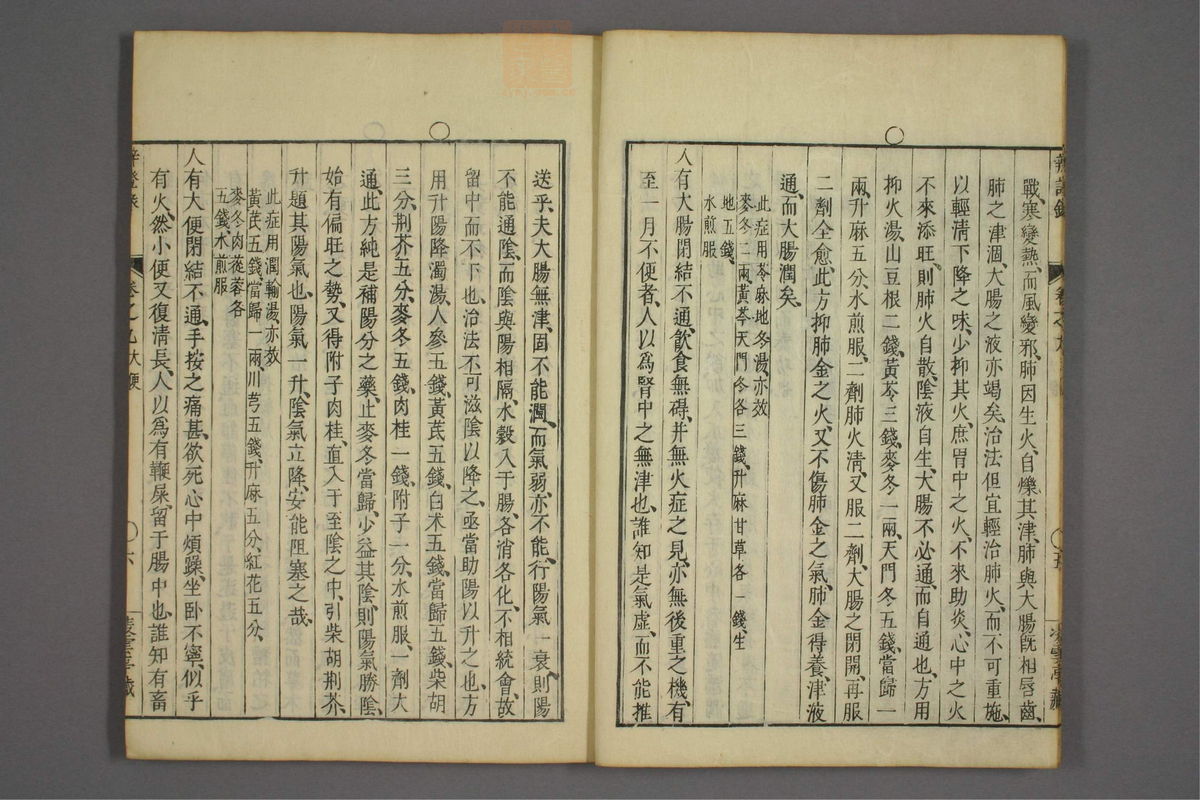 戰、寒變熱、而風變邪、肺因生火、自爍其津、肺與大腸旣相唇齒、
肺之津涸、大腸之液亦竭矣、治法但宜輕治肺火、而不可重施、
以輕淸下降之味、少抑其火、庶胃中之火、不來助炎、心中之火
不來添旺、則肺火自散、陰液自生、大腸不必通、而自通也、方用
抑火湯、山豆根二錢、黃芩三錢、麥冬一兩、天門冬五錢、當歸一
兩、升麻五分、水煎服、二劑肺火淸、又服二劑、大腸之閉開、再服
二劑全愈、此方抑肺金之火、又不傷肺金之氣、肺金得養、津液
通、而大腸潤矣、
此症用芩麻地冬湯、亦效
麥冬二兩、黃芩天門冬各三錢、升麻甘草各一錢、生
地五錢、
水煎服
人有大腸閉結不通、飮食無碍、幷無火症之見、亦無後重之機、有
至一月不便者、人以爲腎中之無津也、誰知是氣虛、而不能推
送乎、夫大腸無津、固不能潤、而氣弱、亦不能行、陽氣一衰、則陽
不能通陰、而陰與陽相隔、水穀入于腸、各消各化、不相統會、故
留中而不下也、治法不可滋陰以降之、亟當助陽以升之也、方
用升陽降濁湯、人參五錢、黃芪五錢、白朮五錢、當歸五錢、柴胡
三分、荆芥五分、麥冬五錢、肉桂一錢、附子一分、水煎服、一劑大
通、此方純是補陽分之藥、止麥冬當歸、少益其陰、則陽氣勝陰、
始有偏旺之勢、又得附子肉桂、直入于至陰之中、引柴胡荆芥、
升題其陽氣也、陽氣一升、陰氣立降、安能阻塞之哉、
此症用潤輸湯亦效
黃芪五錢、當歸一兩、川芎五錢、升麻五分、紅花五分、
麥冬肉蓯蓉各
五錢、水煎服
人有大便閉結不通、手按之痛甚、欲死、心中煩躁、坐臥不寧、似乎
有火、然小便又復淸長、人以爲有鞭屎、留于腸中也、誰知有畜
卷之九大便
六